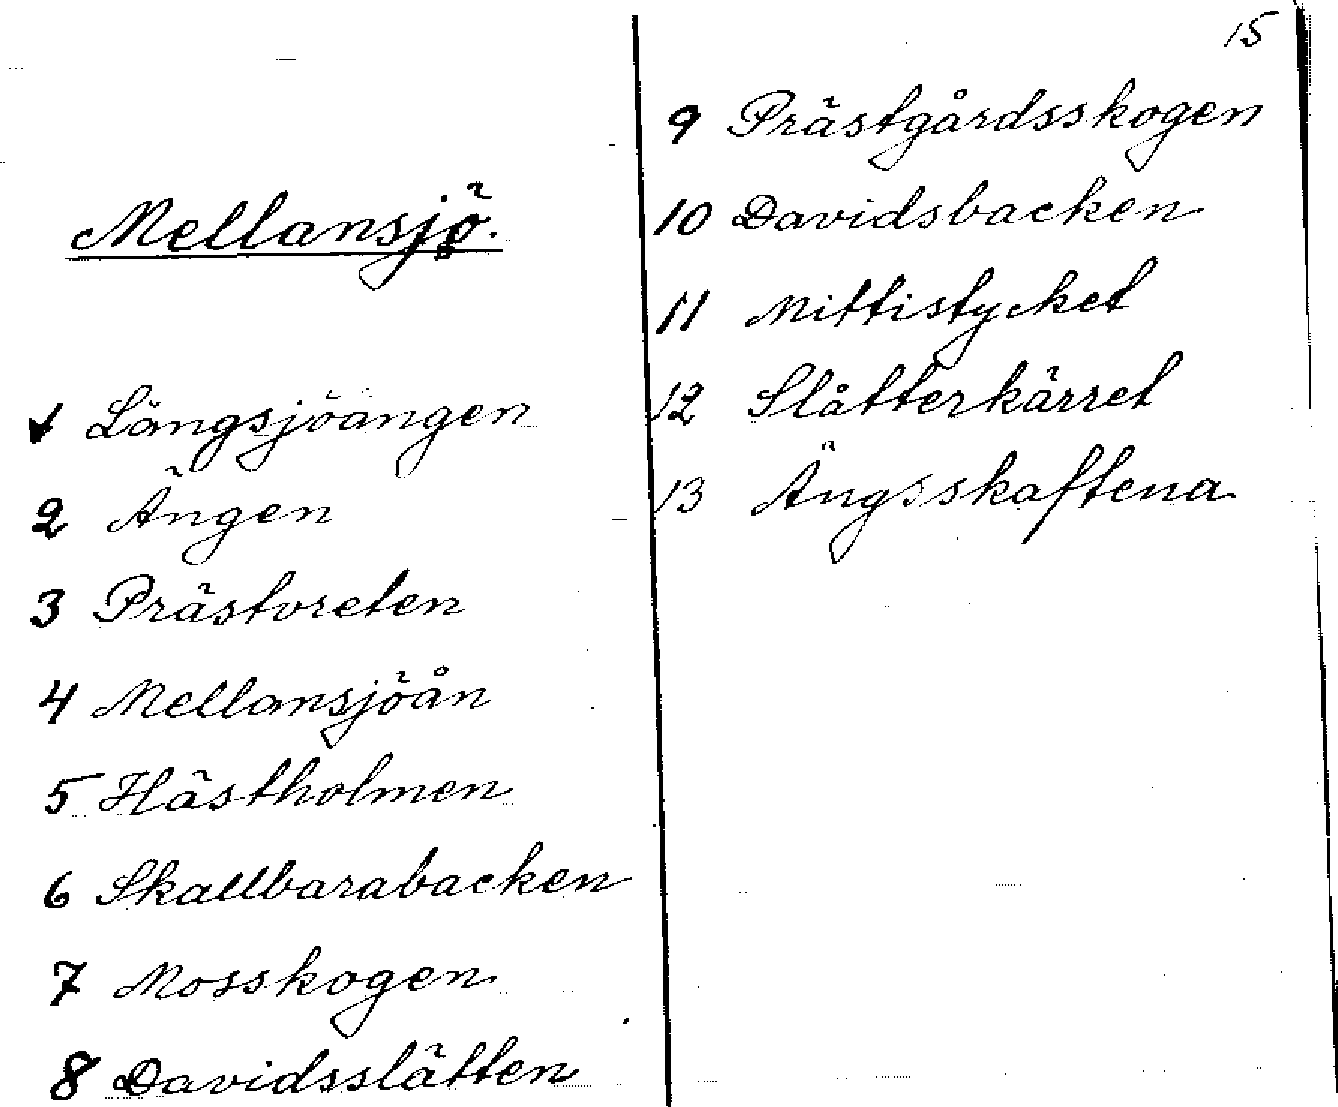 Mellansjö.
1 Långsjöängen
2 Ängen
3 Prästvreten
4 Mellansjöån
5 Hästholmen
6 Skallbarabacken
7 Mosskogen
8 Davidsslätten
15
9 Prästgårdsskogen
10 Davidsbacken
11 Mittistycket
12 Slåtterkärret
13 Ängsskaftena